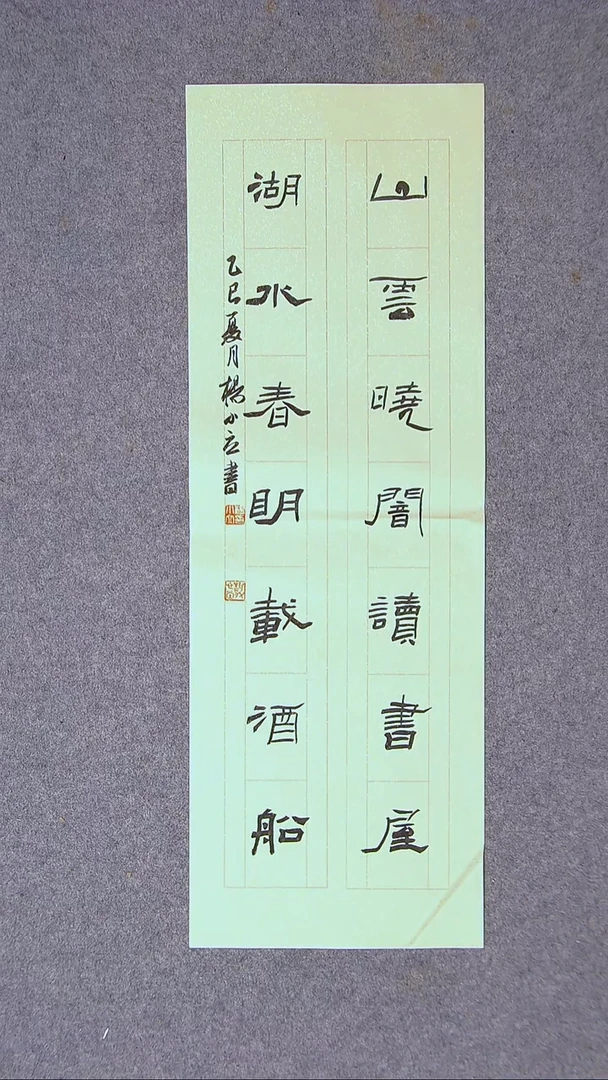 山雲曉闇讀書屋
湖水春明載酒船
乙巳夏月楊小应書